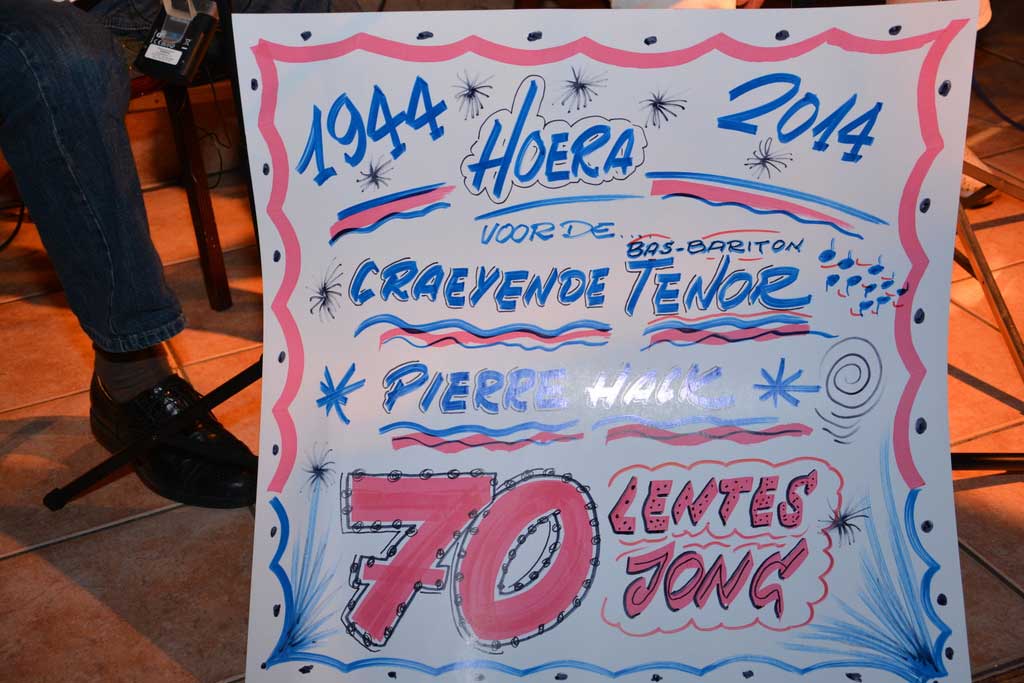 1944 HOERA 2014
VOOR DE...
BAS-BARITON
CRAEYENDE TENOR
PIERRE HACK
70 LENTES
JONG